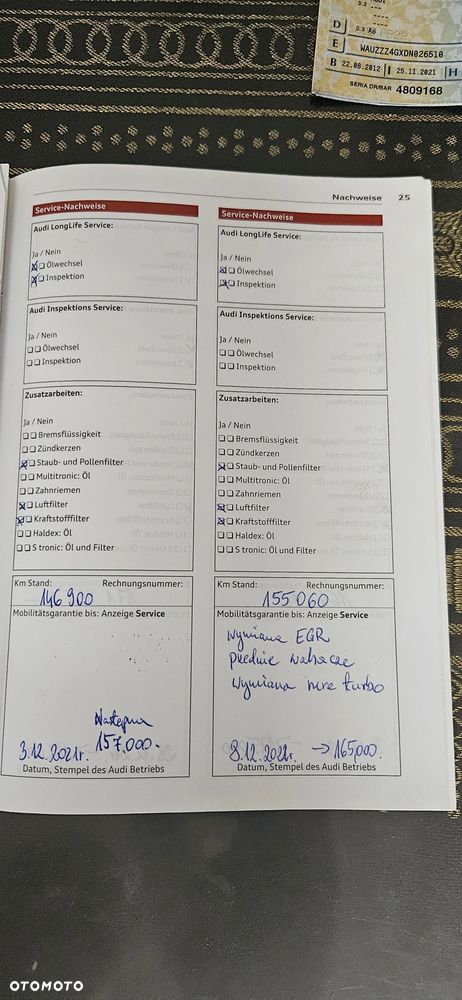 D.2
D
3.3 A6
E WAUZZZ4GXDN026510
B 22.08.2012 I 25.11.2021 H
SERIA DR/BAR 4809168
Nachweise 25
Service-Nachweise
Audi LongLife Service:
Ja / Nein
Ölwechsel
Inspektion
Audi Inspektions Service:
Ja / Nein
Ölwechsel
Inspektion
Zusatzarbeiten:
Ja / Nein
Bremsflüssigkeit
Zündkerzen
Staub- und Pollenfilter
Multitronic: Öl
Zahnriemen
Luftfilter
Kraftstofffilter
Haldex: Öl
S tronic: Öl und Filter
Km Stand: Rechnungsnummer:
146900
Mobilitätsgarantie bis: Anzeige Service
Następna
157.000.-
3.12.2021r.
Datum, Stempel des Audi Betriebs
Service-Nachweise
Audi LongLife Service:
Ja / Nein
Ölwechsel
Inspektion
Audi Inspektions Service:
Ja / Nein
Ölwechsel
Inspektion
Zusatzarbeiten:
Ja / Nein
Bremsflüssigkeit
Zündkerzen
Staub- und Pollenfilter
Multitronic: Öl
Zahnriemen
Luftfilter
Kraftstofffilter
Haldex: Öl
S tronic: Öl und Filter
Km Stand: Rechnungsnummer:
155060
Mobilitätsgarantie bis: Anzeige Service
wymiana EGR
przednie wahacze
wymiana turbo
8.12.2022r. → 165,000.
Datum, Stempel des Audi Betriebs
OTOMOTO